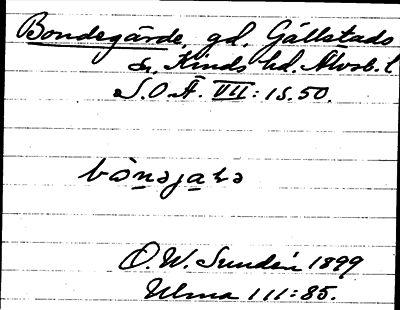 Bondegärde, gd. Gällstads
sn, Kinds hd. Älvsb. l
S.O.Ä. VII: 1 S. 50.
O. W. Sundén 1899
Ulma 111:85.